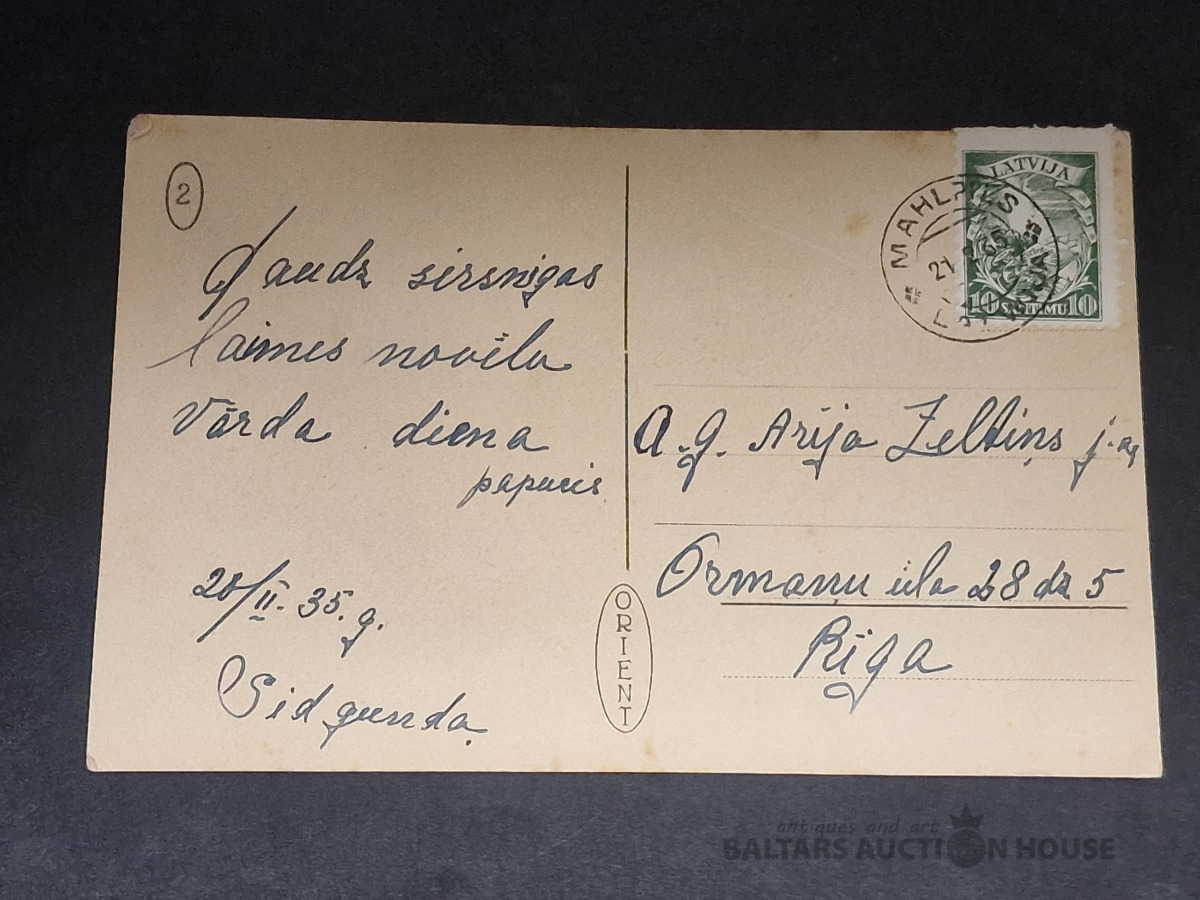 2
Daudz sirsnigas
laimes novēlu
Vārda diena
papucis
20/II. 35. g.
Sidgunda.
ORIENT
LATVIJA
10 SANTIMU 10
MAHLPILS
21
A.g. Arija Zeltiņs j-dz,
Ormaņu iela 28 dz 5
Rīga
antiques and art
BALTARS AUCTION HOUSE